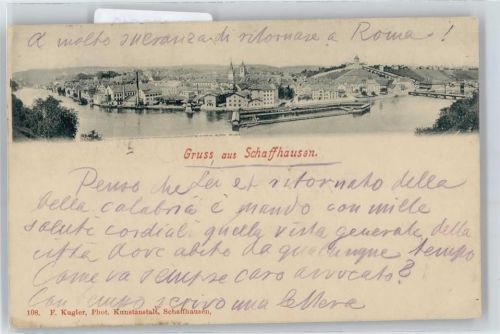 A molto speranza di ritornare a Roma!
Gruss aus Schaffhausen.
Penso che Lei è ritornato della
bella calabria è mando con mille
saluti cordiali quella vista generale della
città dove abito da qualunque tempo
Come va sempre caro avvocato?
Con tempo scrivo una lettera
108. F. Kugler, Phot. Kunstanstalt, Schaffhausen,